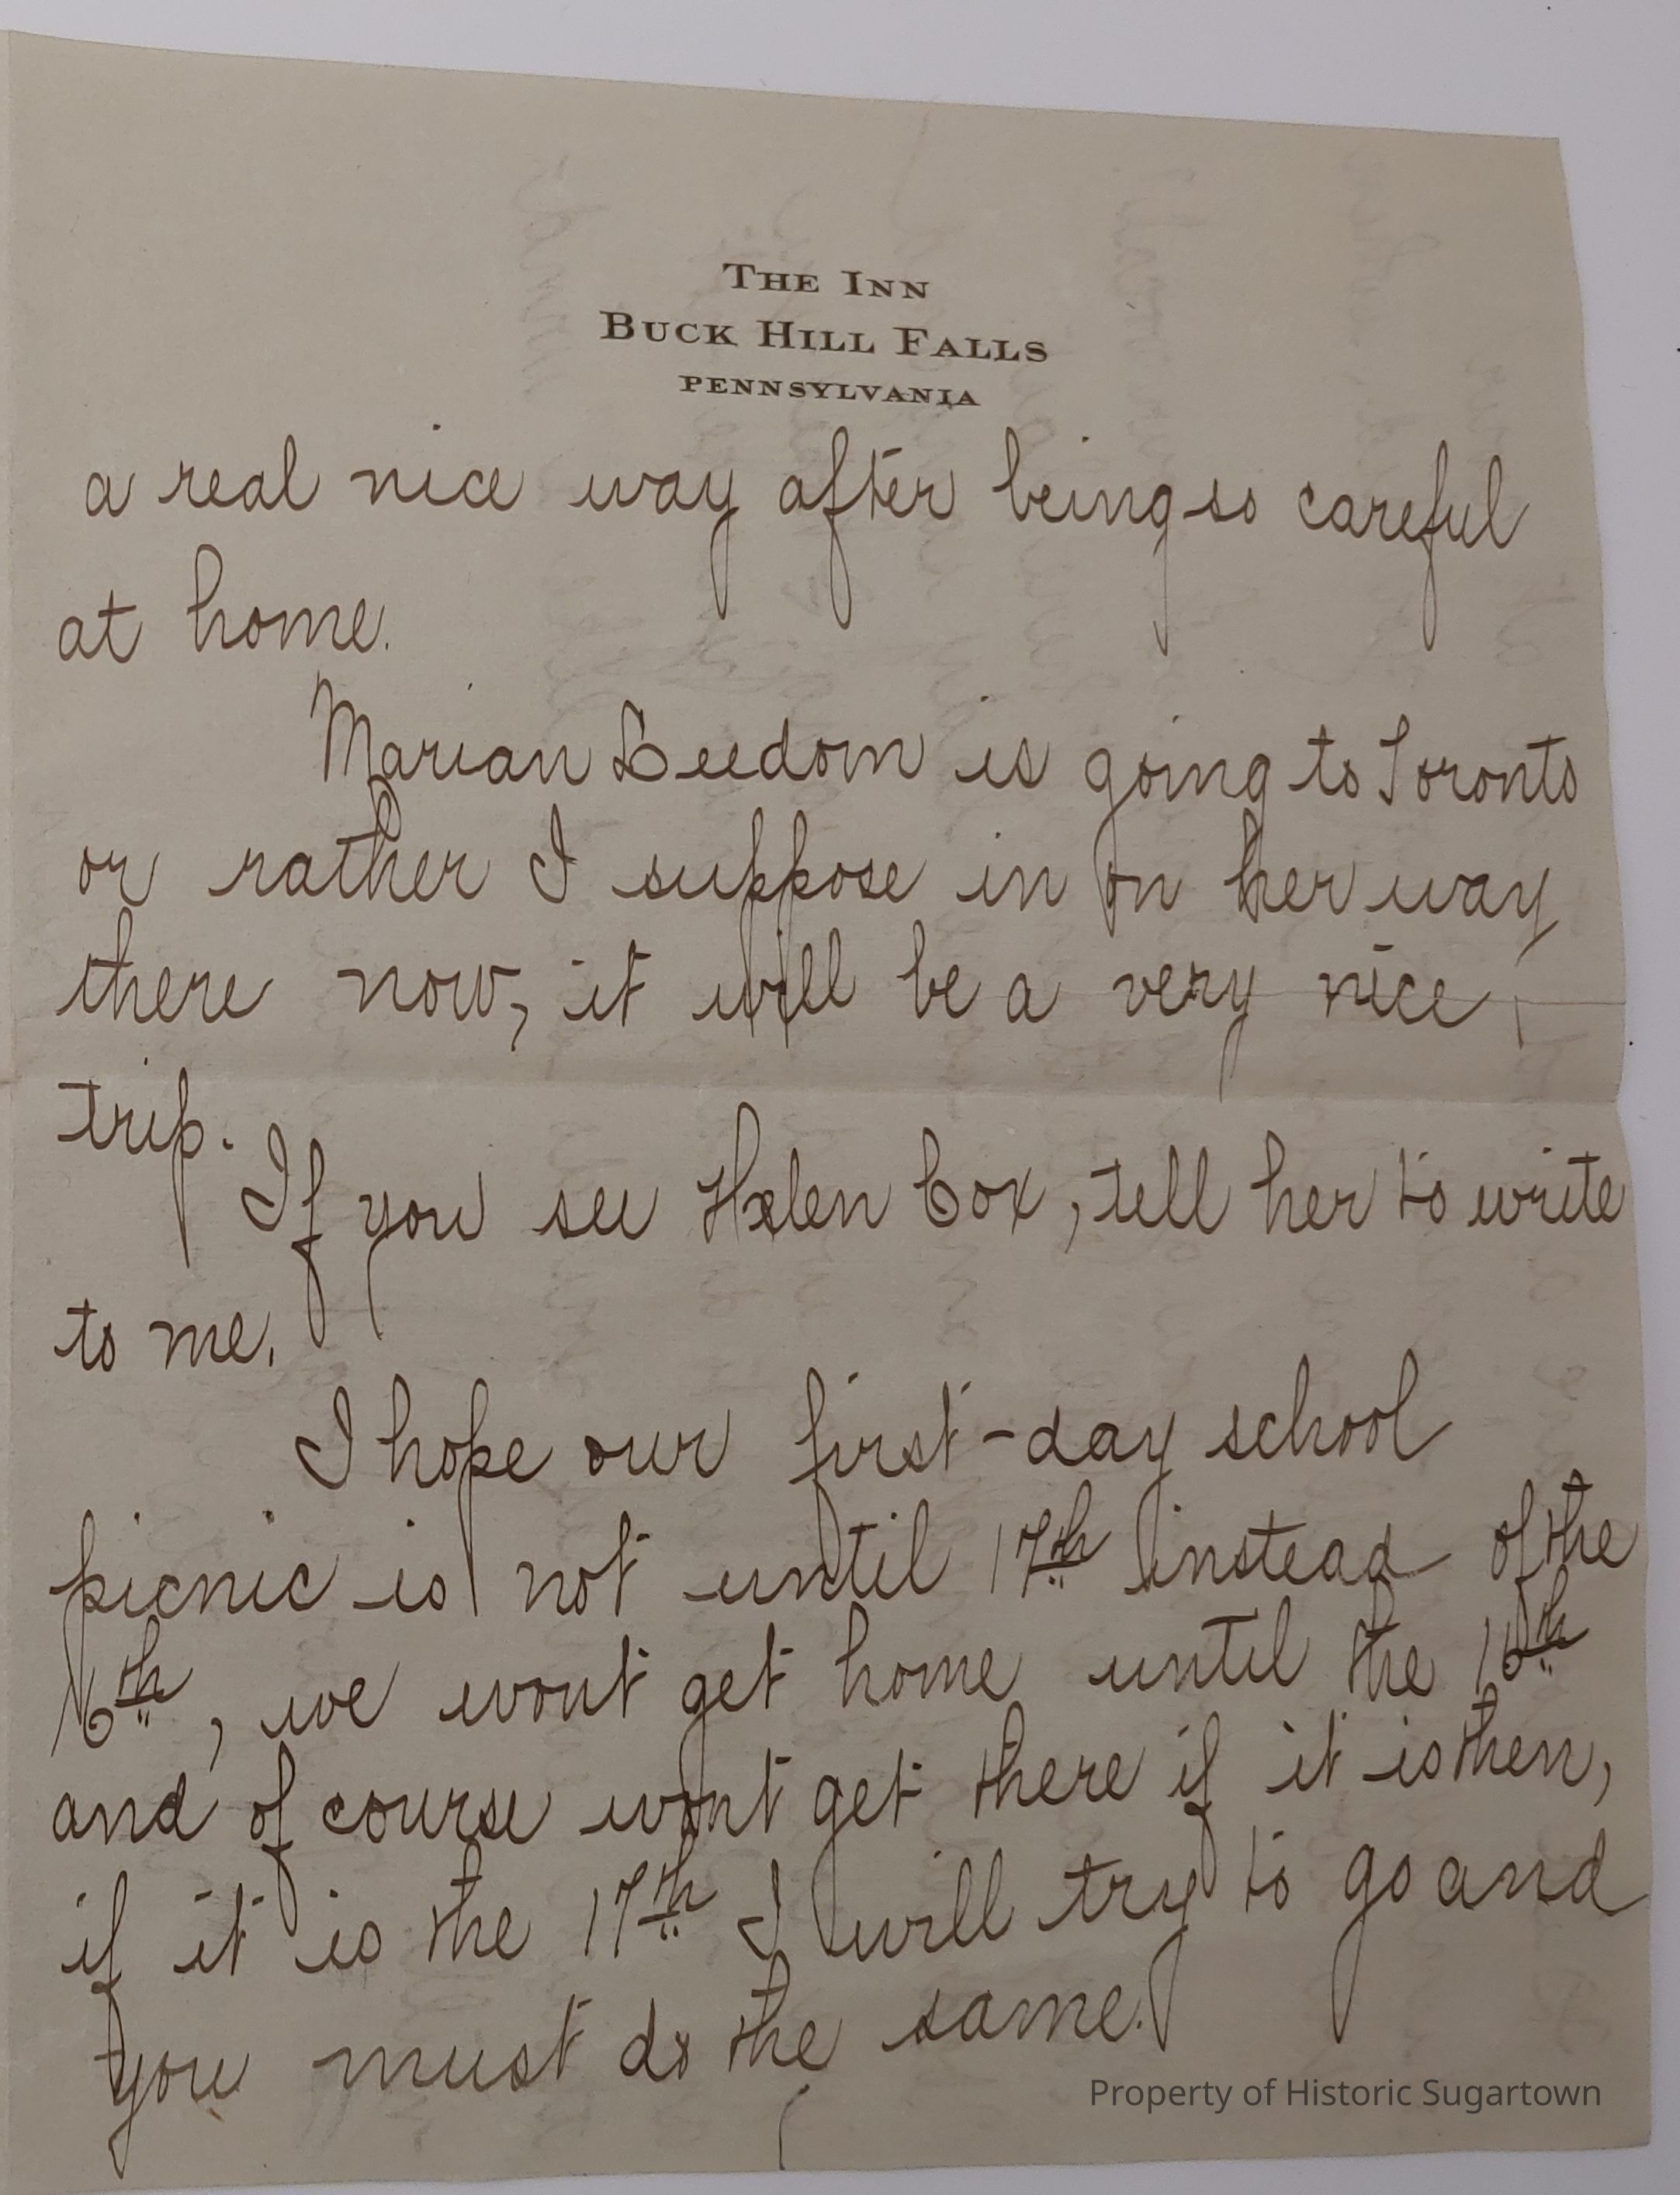 THE INN
BUCK HILL FALLS
PENNSYLVANIA
a real nice way after being so careful
at home.
Marian Beedom is going to Toronto
or rather I suppose in on her way
there now, it will be a very nice
trip.
If you see Helen Cox, tell her to write
to me.
I hope our first-day school
picnic is not until 17th instead of the
16th, we wont get home until the 16th
and of course wont get there if it is then,
if it is the 17th I will try to go and
you must do the same.
Property of Historic Sugartown